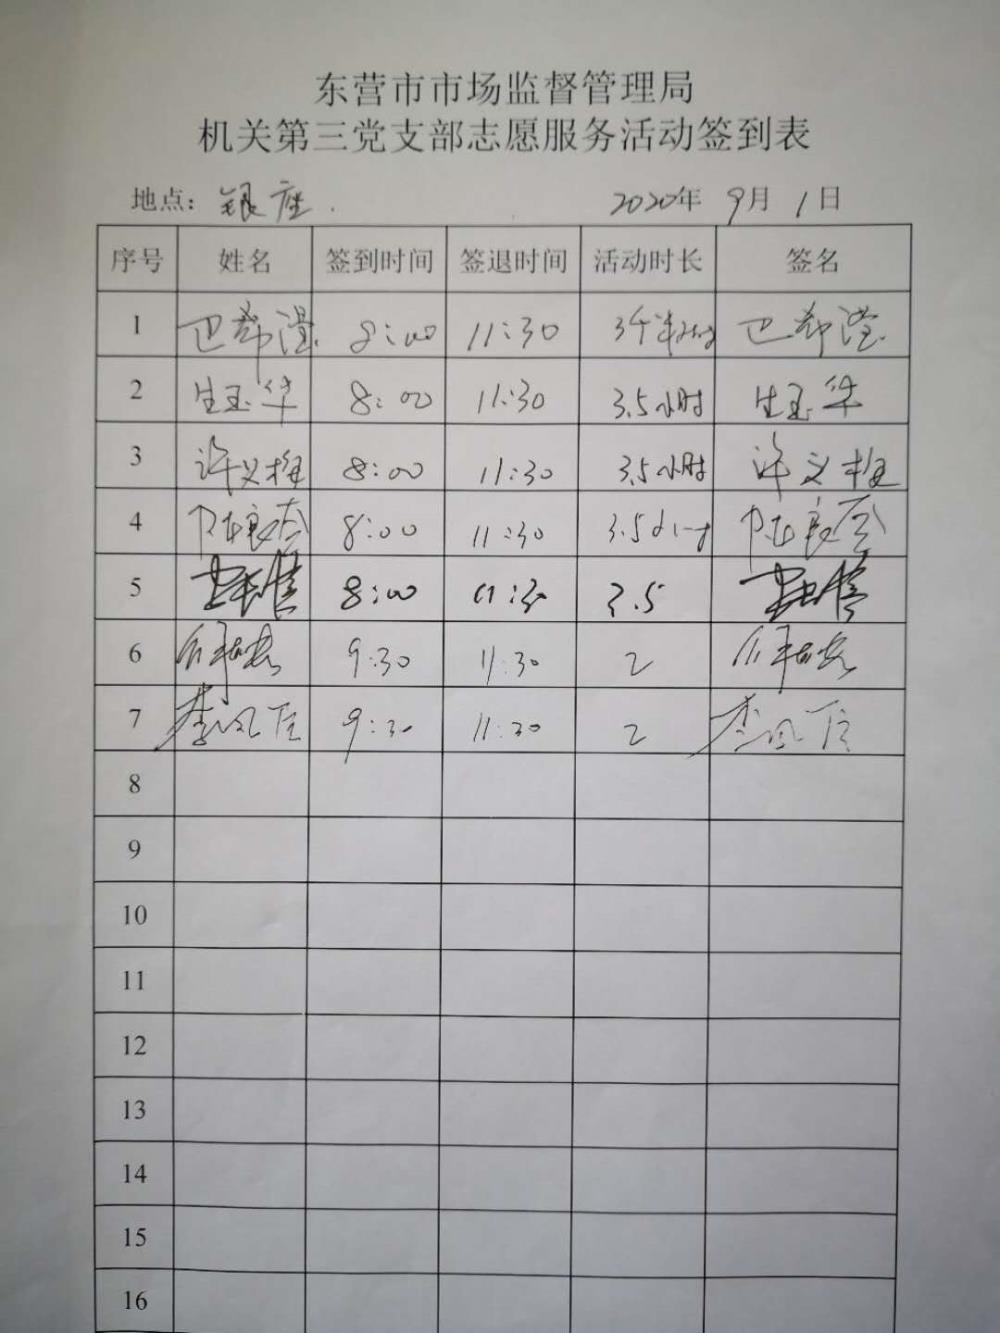 东营市市场监督管理局
机关第三党支部志愿服务活动签到表
地点: 银座. 2020年 9月 1日
序号 姓名 签到时间 签退时间 活动时长 签名
1 巴希滢 8:00 11:30 3个半小时 巴希滢
2 生玉华 8:00 11:30 3.5小时 生玉华
3 许义栓 8:00 11:30 3.5小时 许义栓
4 8:00 11:30 3.5小时
5 8:00 11:30 3.5
6 9:30 11:30 2
7 李 9:30 11:30 2 李
8
9
10
11
12
13
14
15
16